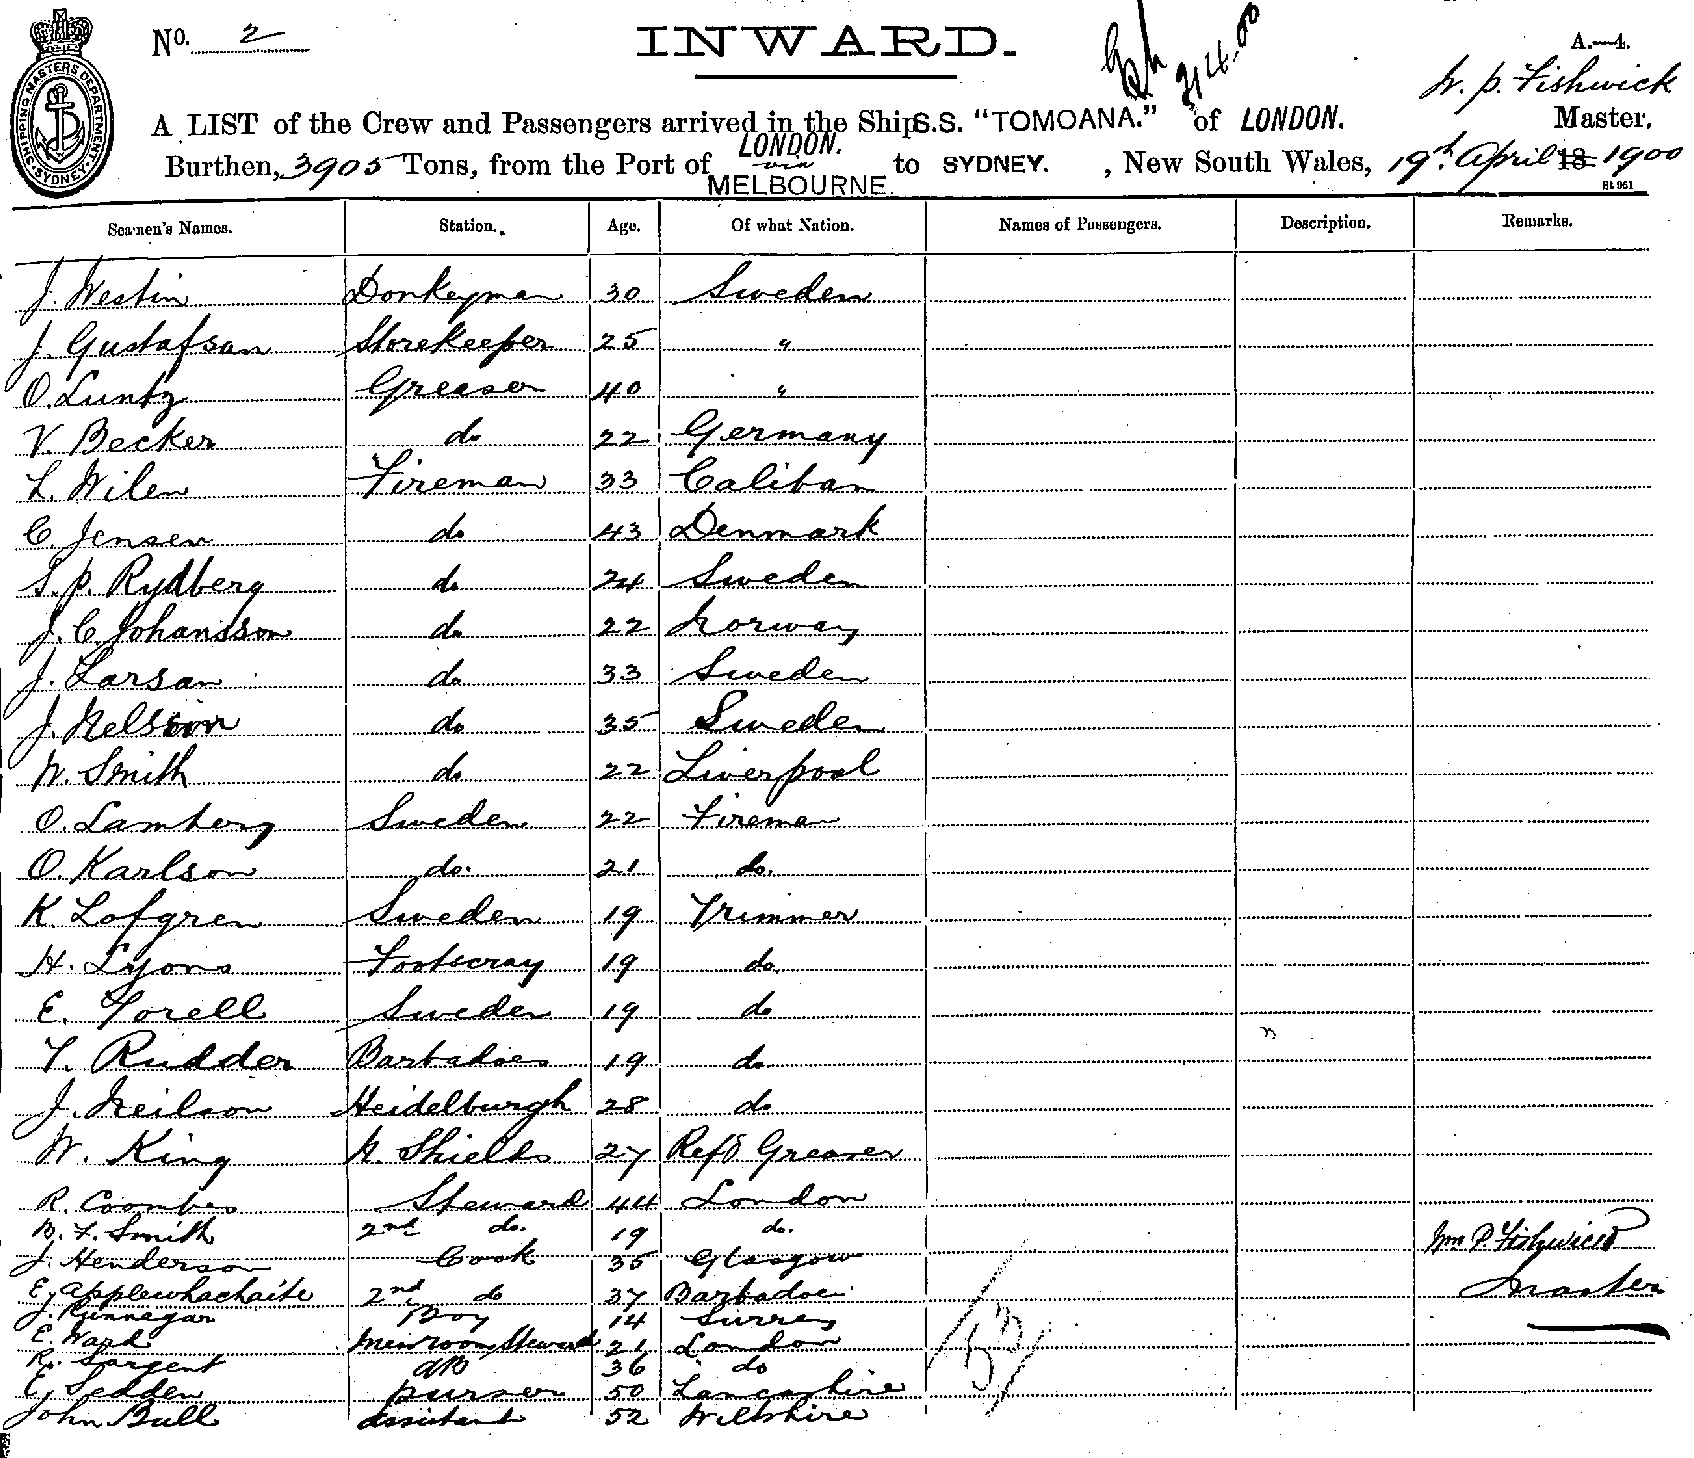 No. 2
INWARD.
A.—4.
W. P. Fishwick
A LIST of the Crew and Passengers arrived in the Ship S.S. "TOMOANA." of LONDON. Master,
Burthen, 3905 Tons, from the Port of LONDON. via MELBOURNE. to SYDNEY. , New South Wales, 19th April 18 1900
SHIPPING MASTERS DEPARTMENT SYDNEY
Seamen's Names. Station. Age. Of what Nation. Names of Passengers. Description. Remarks.
J. Westin Donkeyman 30 Sweden
J. Gustafson Storekeeper 25 "
O. Luntz Greaser 40 "
V. Becker do 22 Germany
L. Wilen Fireman 33 Caliban
C. Jensen do 43 Denmark
S. P. Rydberg do 24 Sweden
J. C. Johansson do 22 Norway
J. Larsan do 33 Sweden
J. Nelsson do 35 Sweden
W. Smith do 22 Liverpool
O. Lamberg Sweden 22 Fireman
O. Karlson do. 21 do.
K. Lofgren Sweden 19 Trimmer
H. Lyons Footscray 19 do.
E. Torell Sweden 19 do
T. Rudder Barbadoes 19 do
J. Neilson Heidelburgh 28 do
W. King N. Shields 27 Refg Greaser
R. Coombes Steward 44 London
B. F. Smith 2nd do. 19 do.
J. Henderson Cook 35 Glasgow
E. Applewhachaite 2nd do 37 Barbadoes
J. Runnegar Boy 14 Surrey
E. Ward Messroom Steward 21 London
R. Sargent AB 36 do
E. Sedden purser 50 Lancashire
John Bull assistant 52 Wiltshire
53
Wm P. Fishwick
Master